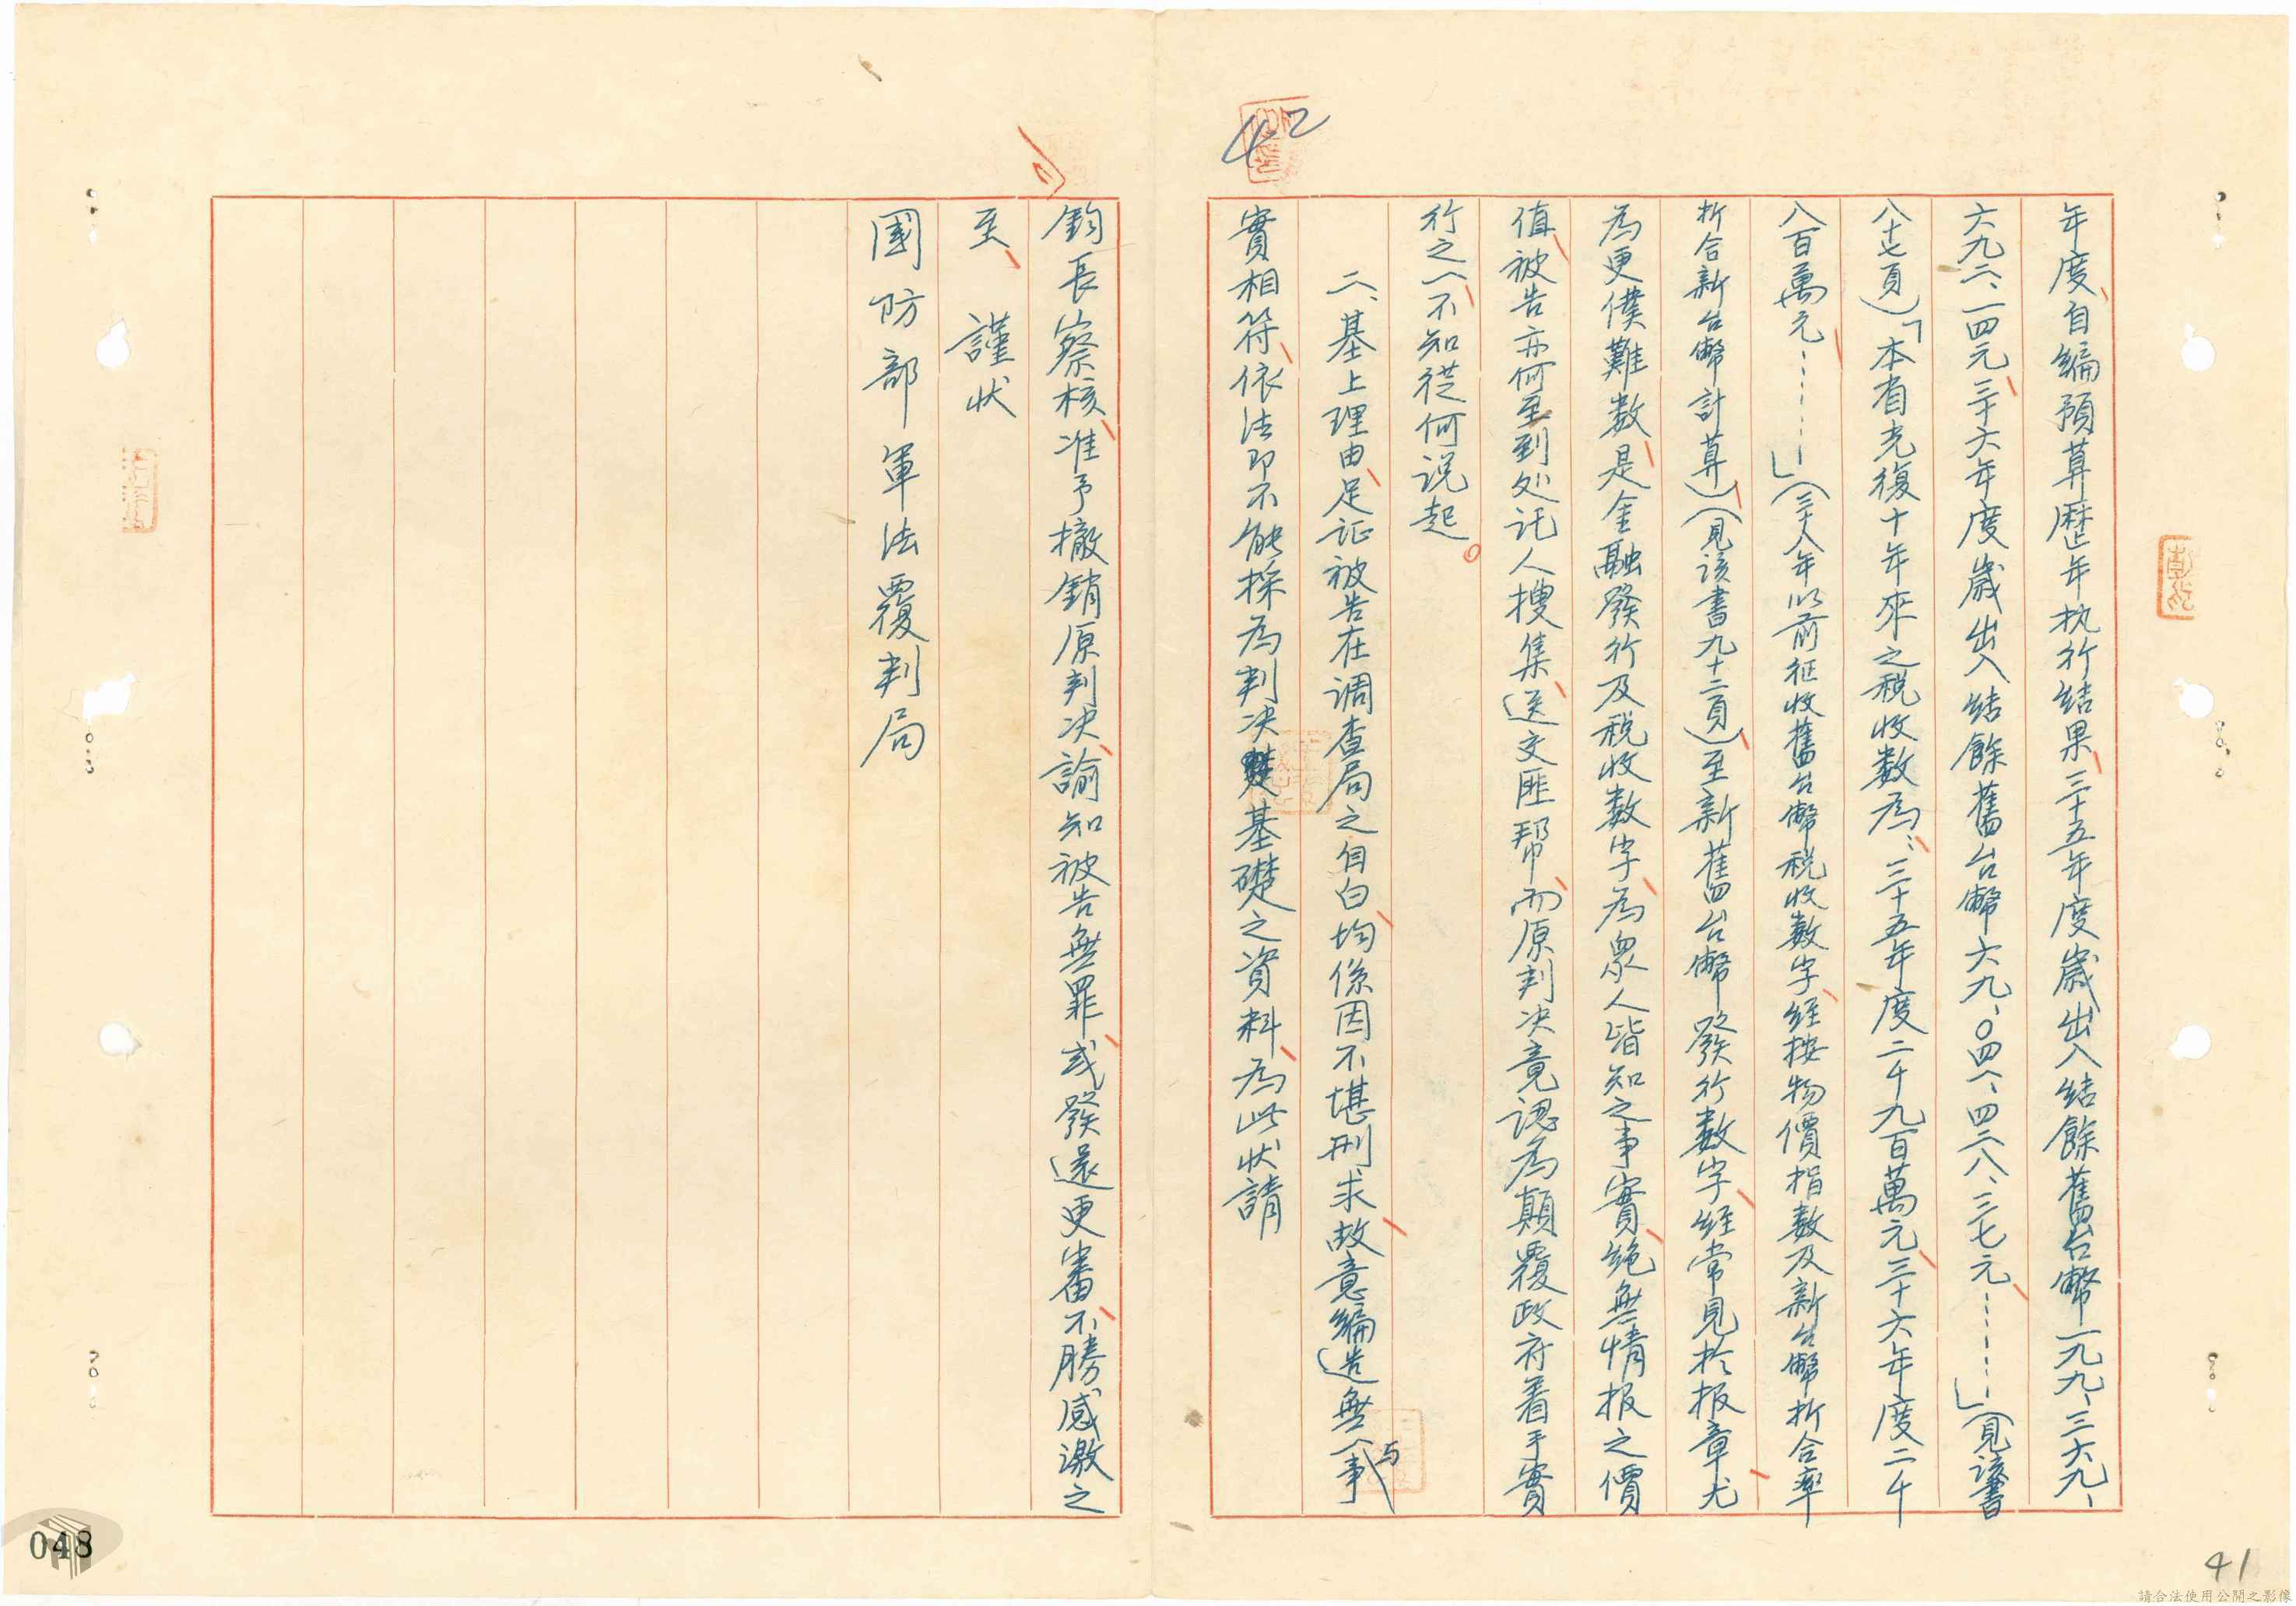 年度自編預算歷年执行结果三十五年度歲出入结餘舊台幣一九九、三六九、
六九二、一四元三十六年度歲出入结餘舊台幣六九、〇四八、四二八、三七元……」(見該書
八十七頁)「本省光復十年來之稅收数為:三十五年度二千九百萬元三十六年度二千
八百萬元………」(三十八年以前征收舊台幣稅收數字經按物價指數及新台幣折合率
折合新台幣計算)(見該書九十二頁)至新舊台幣發行数字經常見於报章尤
為更僕難数是金融發行及稅收数字為眾人皆知之事實絕無情报之價
值被告亦何至到处託人搜集送文匪帮而原判决竟認為顛覆政府着手實
行之一不知從何说起。
二、基上理由足証被告在調查局之自白均係因不堪刑求故意編造無一与事
實相符依法即不能採為判决基礎之資料為此状請
鈞長察核准予撤銷原判决諭知被告無罪或發還更審不勝感激之
至 謹状
國防部軍法覆判局
42
41
048
請合法使用公開之影像